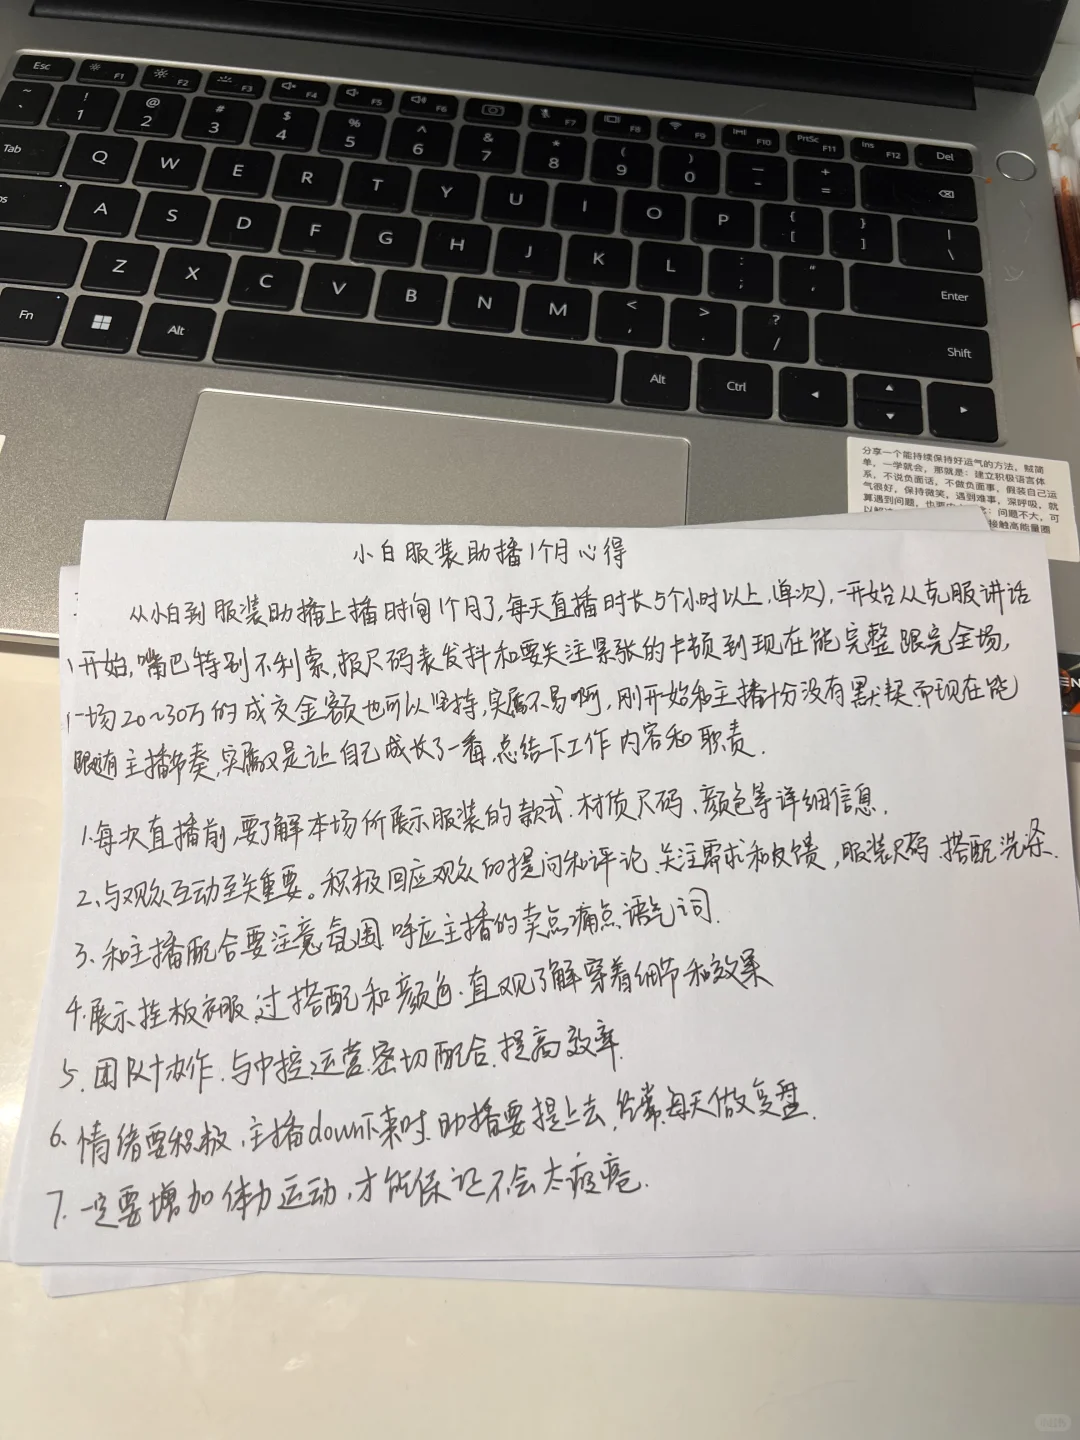 Esc F1 F2 F3 F4 F5 F6 F7 F8 F9 F10 PrtSc F11 Ins F12 Del
~ ` ! 1 @ 2 # 3 $ 4 % 5 ^ 6 & 7 * 8 ( 9 ) 0 — - + =
Tab Q W E R T Y U I O P { [ } ] | \
A S D F G H J K L : ; " ' Enter
Z X C V B N M < , > . ? / Shift
Fn Alt Alt Ctrl
分享一个能持续保持好运气的方法，贼简
单，一学就会，那就是：建立积极语言体
系，不说负面话，不做负面事，假装自己运
气很好，保持微笑，遇到难事，深呼吸，就
算遇到问题，也要 ：问题不大，可
接触高能量圈
小白服装助播1个月心得
从小白到服装助播上播时间1个月了，每天直播时长5个小时以上，(单次)，一开始从克服讲话
开始，嘴巴特别不利索，报尺码表发抖和要关注紧张的卡顿到现在能完整跟完全场，
一场20~30万的成交金额也可以坚持，实属不易啊，刚开始和主播十分没有默契而现在能
跟随有主播节奏，实属又是让自己成长了一番，总结下工作内容和职责．
1.每次直播前，要了解本场所展示服装的款式．材质尺码、颜色等详细信息．
2、与观众互动至关重要。积极回应观众的提问和评论．关注需求和反馈，服装尺码．搭配洗涤．
3、和主播配合要注意氛围．呼应主播的卖点痛点语气词．
4.展示挂板衣服．过搭配和颜色．直观了解穿着细节和效果
5．团队协作．与中控．运营．密切配合．提高效率．
6、情绪要积极，主播down下来时．助播要提上去，经常每天做复盘．
7．一定要增加体力运动，才能保证不会太疲惫．